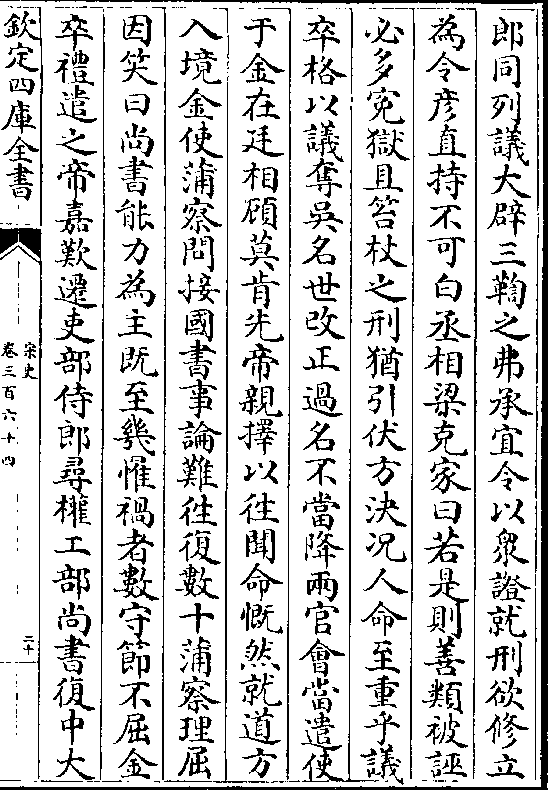 郎同列議大辟三鞫之弗承宜令以衆證就刑欲修立
為令彦直持不可白丞相梁克家曰若是則善類被誣
必多寃獄且笞杖之刑猶引伏方決况人命至重乎議
卒格以議奪吳名世改正過名不當降兩官會當遣使
于金在廷相顧莫肯先帝親擇以往聞命慨然就道方
入境金使蒲察問接國書事論難往復數十蒲察理屈
因笑曰尚書能力為主既至幾罹禍者數守節不屈金
卒禮遣之帝嘉歎遷吏部侍郎尋權工部尚書復中大
欽定四庫全書
宋史
卷三百六十四
二十